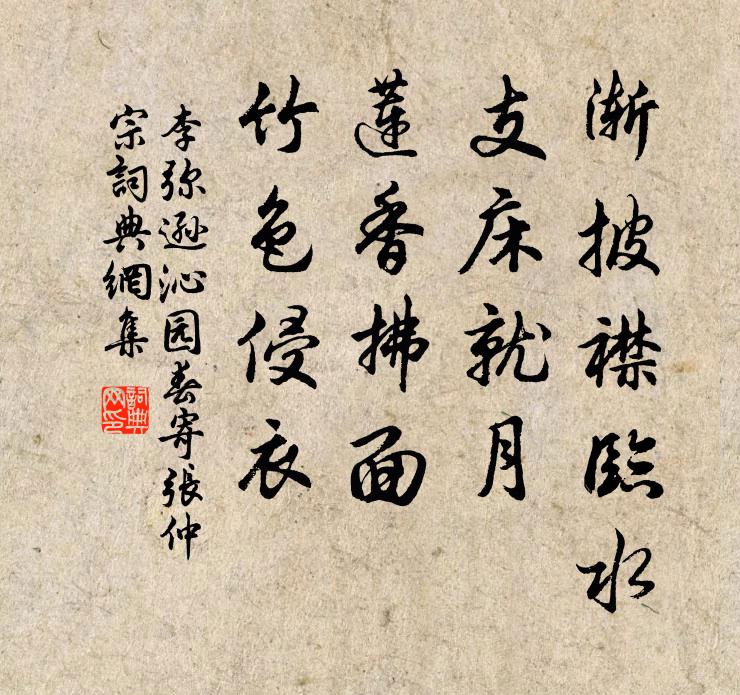 渐披襟临水
支床就月
莲香拂面
竹色侵衣
李弥逊沁园春寄张仲
宗词典網集
詞典網印